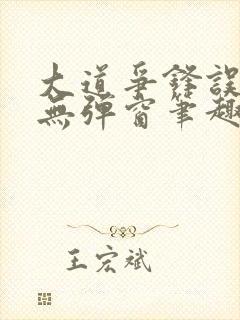 大道爭鋒誤
無彈窗筆趣
王宏斌